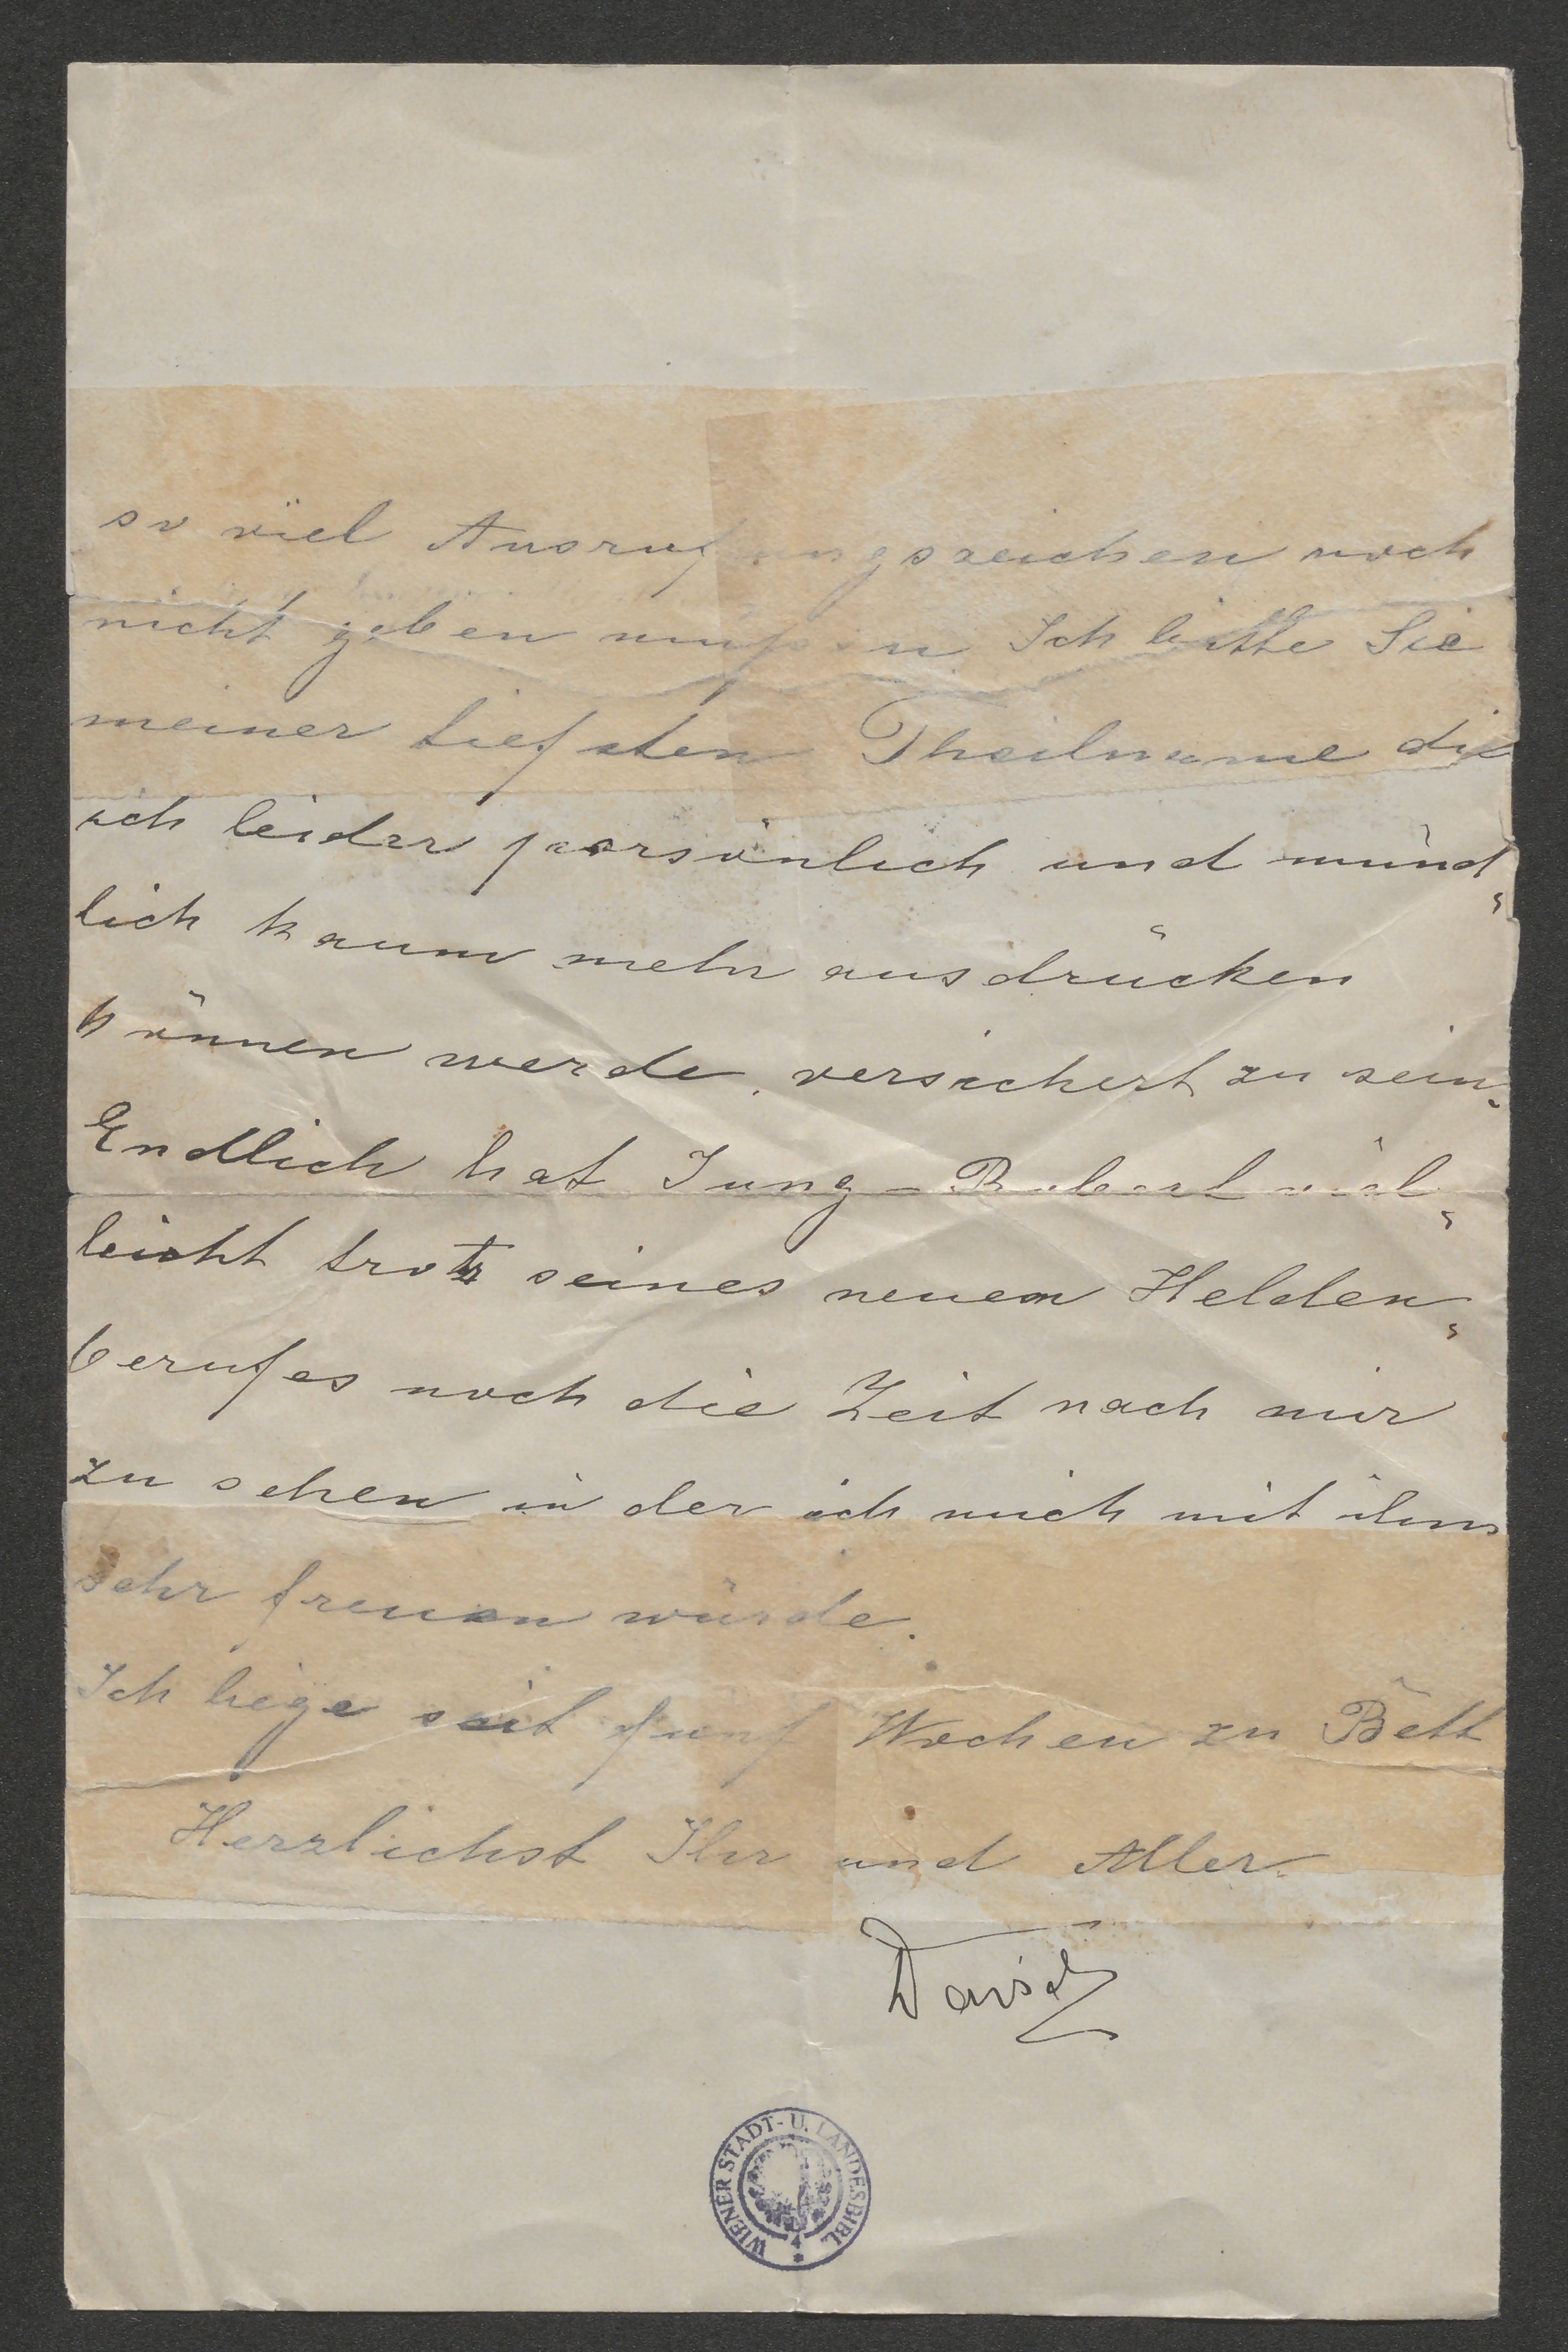 so viel Ausrufungszeichen noch
nicht geben mußen Ich bitte Sie
meiner tiefsten Theilname die
ich leider persönlich und münd„
lich kaum mehr ausdrücken
können werde, versichert zu sein.
Endlich hat Jung-Robert viel„
leicht trotz seines neuen Helden„
berufes noch die Zeit nach mir
zu sehen in der ich mich mit ihm
sehr freuen würde.
Ich liege seit fünf Wochen zu Bett
Herzlichst Ihr und Aller
David
WIENER STADT- U. LANDESBIBL.
4